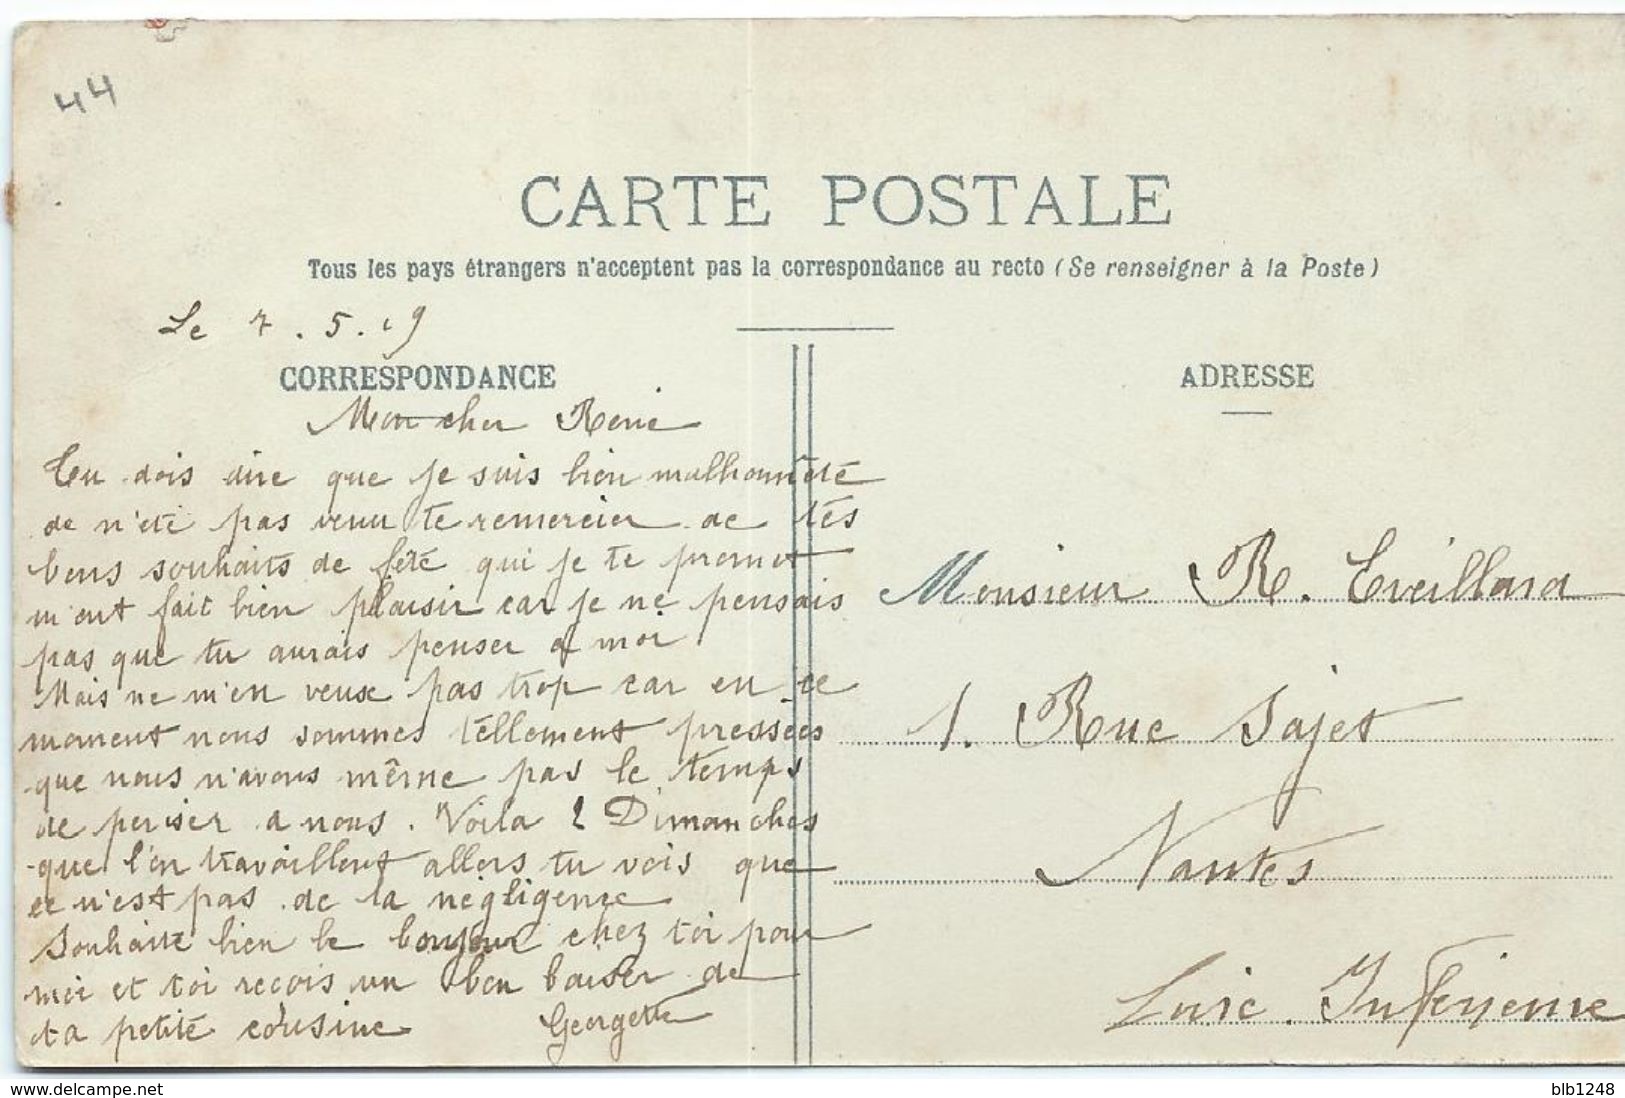 44
CARTE POSTALE
Tous les pays étrangers n'acceptent pas la correspondance au recto (Se renseigner à la Poste)
Le 7.5.19
CORRESPONDANCE
Mon cher René
Tu dois dire que je suis bien malhonnêté
de n'été pas venu te remercier de tes
bons souhaits de fête qui je te promet
m'ont fait bien plaisir car je ne pensais
pas que tu aurais penser a moi
Mais ne m'en veuse pas trop car en ce
moment nous sommes tellement pressées
que nous n'avons même pas le temps
de penser a nous. Voila 2 Dimanches
que l'on travaillent allors tu vois que
ce n'est pas de la négligence
Souhaite bien le bonjour chez toi pour
moi et toi reçois un bon baiser de
ta petite cousine Georgette
ADRESSE
Monsieur R. Eveillard
1. Rue Sajet
Nantes
Loire Inférieure
blb1248
www.delcampe.net